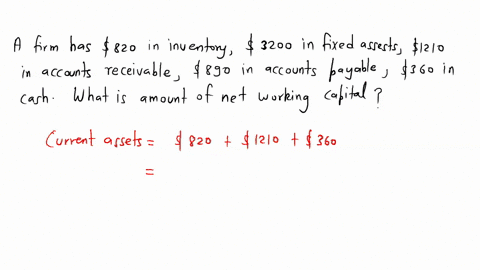 A firm has $820 in inventory, $3200 in fixed assests, $1210
in accounts receivable, $890 in accounts payable, $360 in
cash. What is amount of net working capital?
Current assets = $820 + $1210 + $360
=